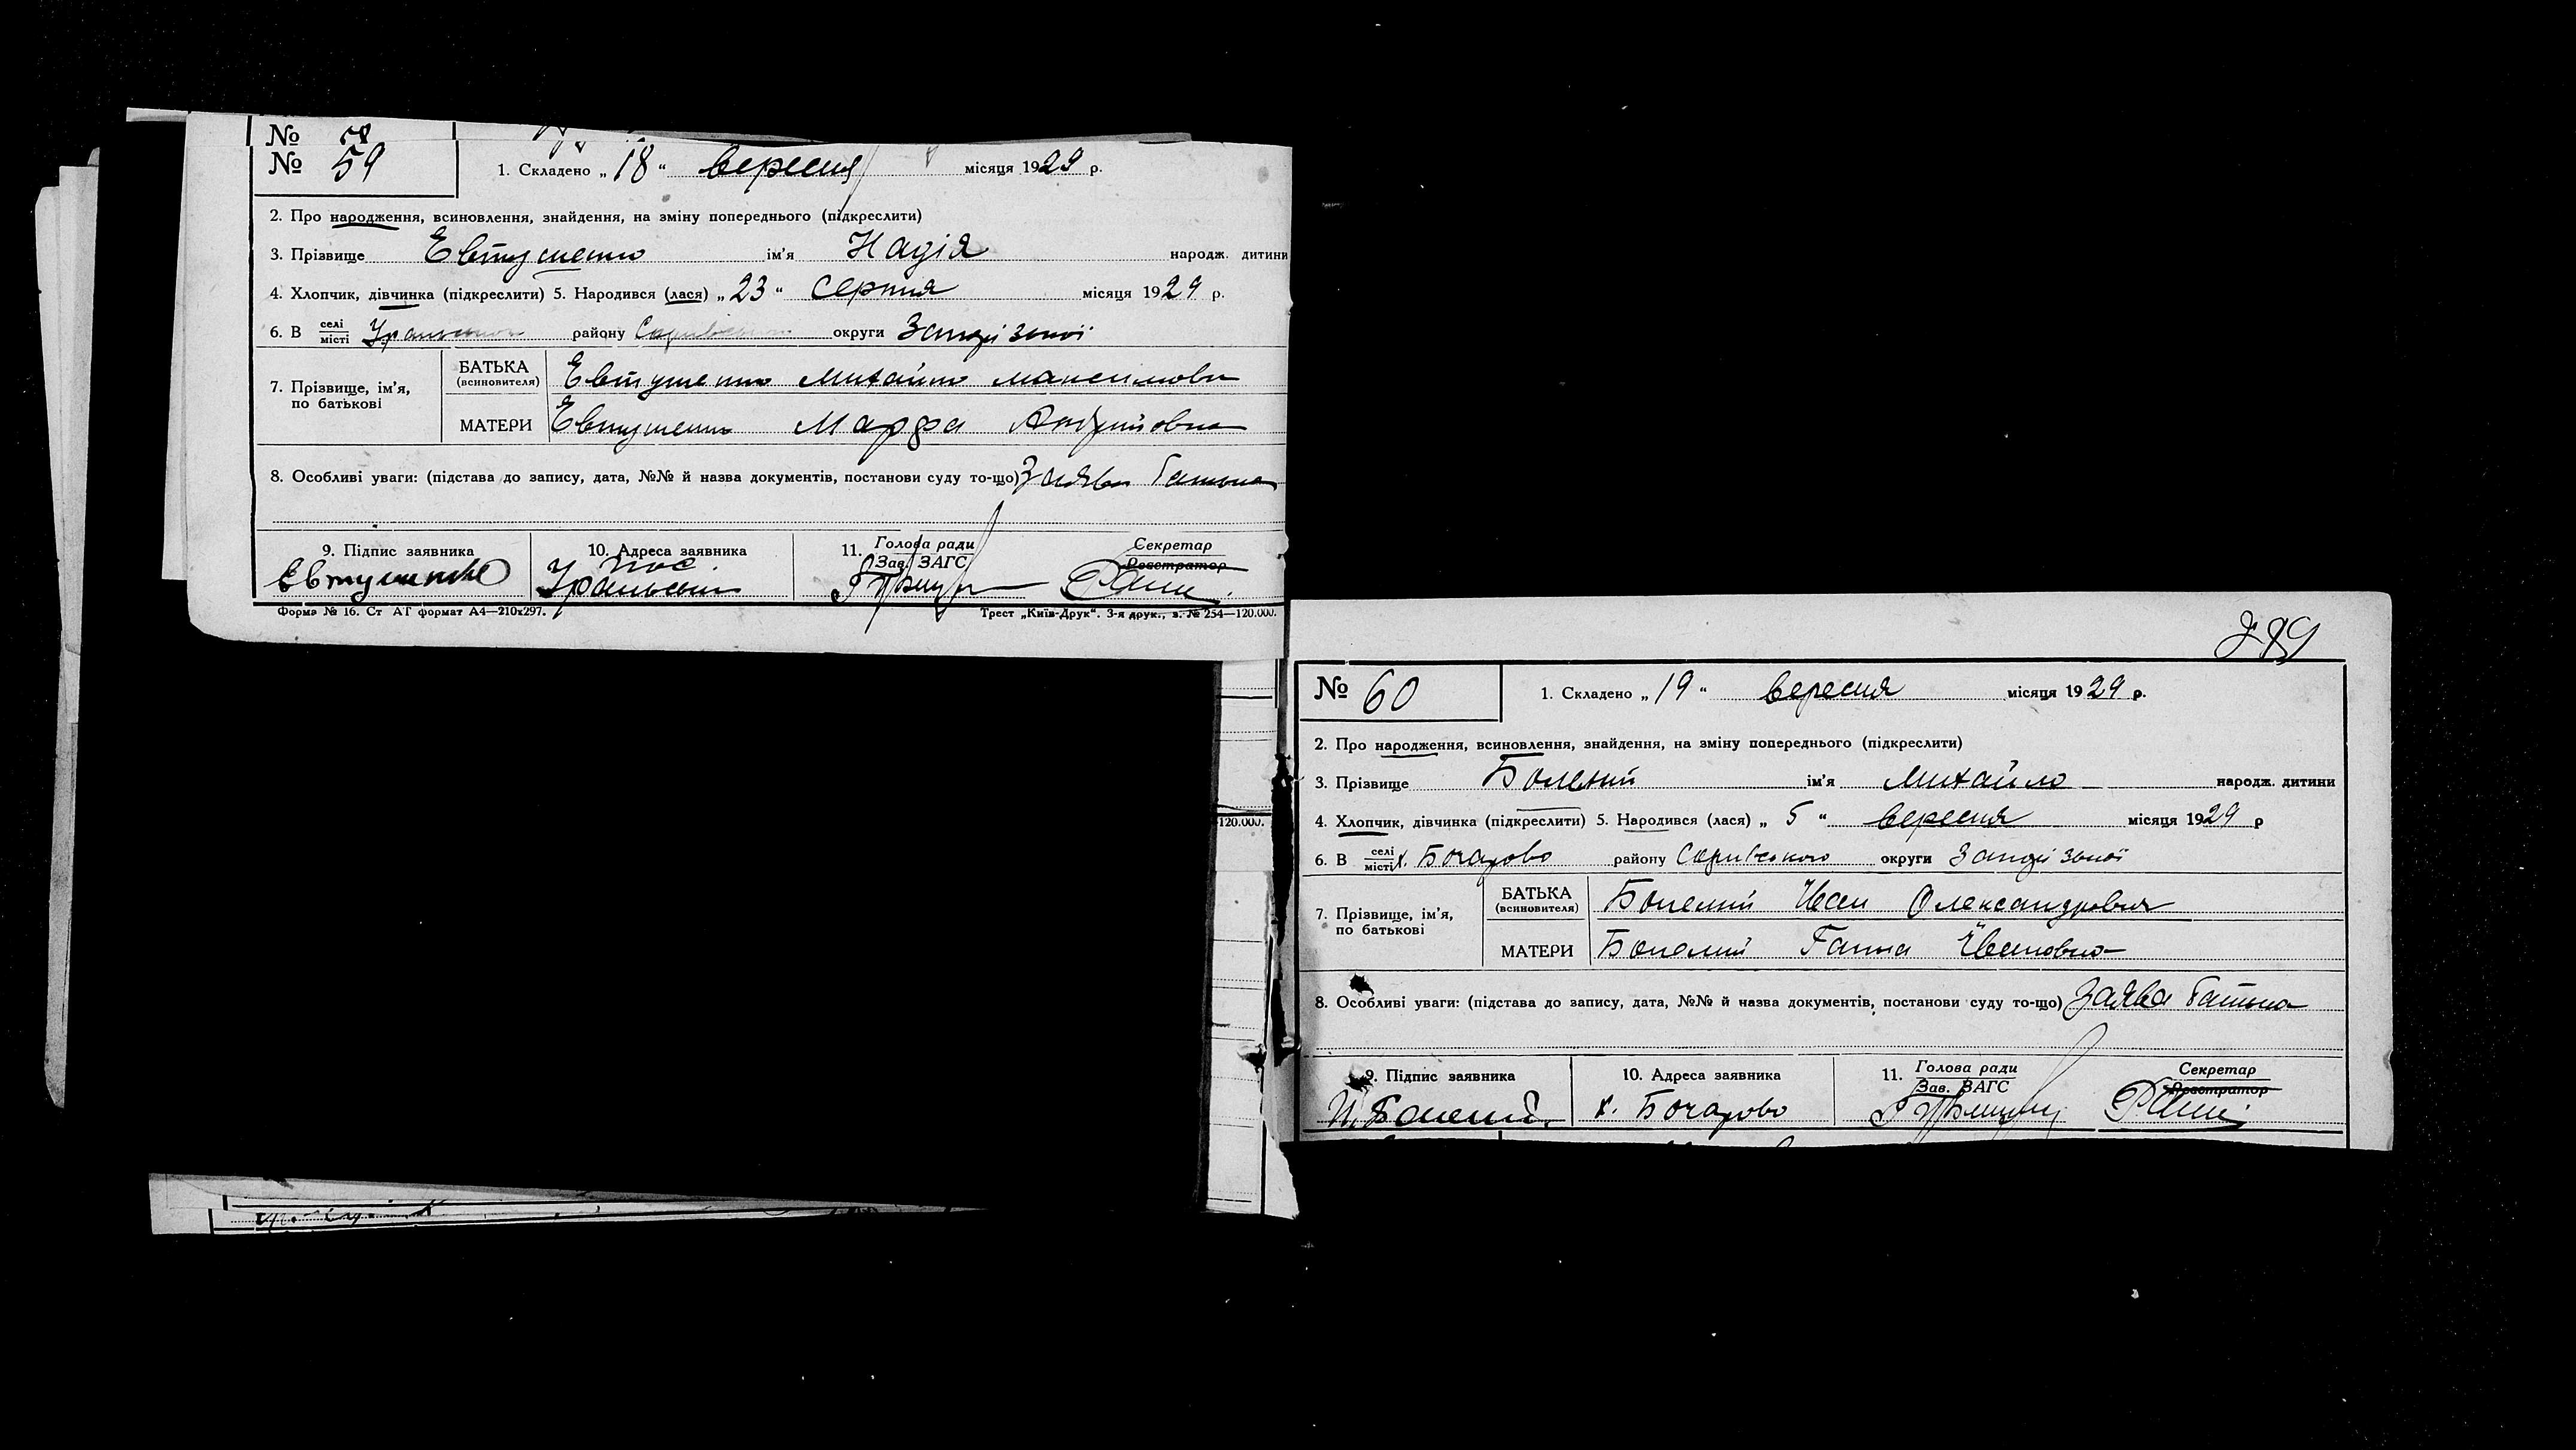 № 58
№ 59
1. Складено „18“ вересня місяця 1929 р.
2. Про народження, всиновлення, знайдення, на зміну попереднього (підкреслити)
3. Прізвище Евтушенко ім'я Надія народж. дитини
4. Хлопчик, дівчинка (підкреслити) 5. Народився (лася) „23“ серпня місяця 1929 р.
6. В селі місті району округи Запорізької
7. Прізвище, ім'я, по батькові
БАТЬКА (всиновителя) Евтушенко Михайло Максимови
МАТЕРИ Евтушенко Марфа Андріїовна
8. Особливі уваги: (підстава до запису, дата, №№ й назва документів, постанови суду то-що) Заява батька
9. Підпис заявника
10. Адреса заявника
11. Голова ради
Зав. ЗАГС
Секретар
Реєстратор
Евтушенко
Форма № 16. Ст АТ формат А4—210х297.
Трест „Київ-Друк“. 3-я друк., з. № 254—120.000.
120.000.
289
№ 60
1. Складено „19“ вересня місяця 1929 р.
2. Про народження, всиновлення, знайдення, на зміну попереднього (підкреслити)
3. Прізвище ім'я Михайло народж. дитини
4. Хлопчик, дівчинка (підкреслити) 5. Народився (лася) „5“ вересня місяця 1929 р
6. В селі місті х. Бочарово району округи Запорізької
7. Прізвище, ім'я, по батькові
БАТЬКА (всиновителя) Іван Олександрович
МАТЕРИ Ганна Івановна
8. Особливі уваги: (підстава до запису, дата, №№ й назва документів, постанови суду то-що) Заява батька
9. Підпис заявника
10. Адреса заявника
11. Голова ради
Зав. ЗАГС
Секретар
Реєстратор
х. Бочарово